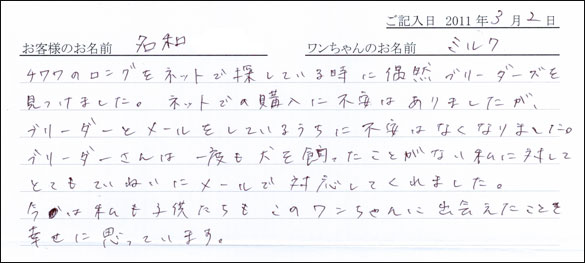 ご記入日 2011年3月2日
お客様のお名前 名和 ワンちゃんのお名前 ミルク
チワワのロングをネットで探している時に偶然ブリーダーズを
見つけました。ネットでの購入に不安はありましたが、
ブリーダーとメールをしているうちに不安はなくなりました。
ブリーダーさんは一度も犬を飼ったことがない私に対して
とてもていねいにメールで対応してくれました。
今では私も子供たちもこのワンちゃんに出会えたことを
幸せに思っています。